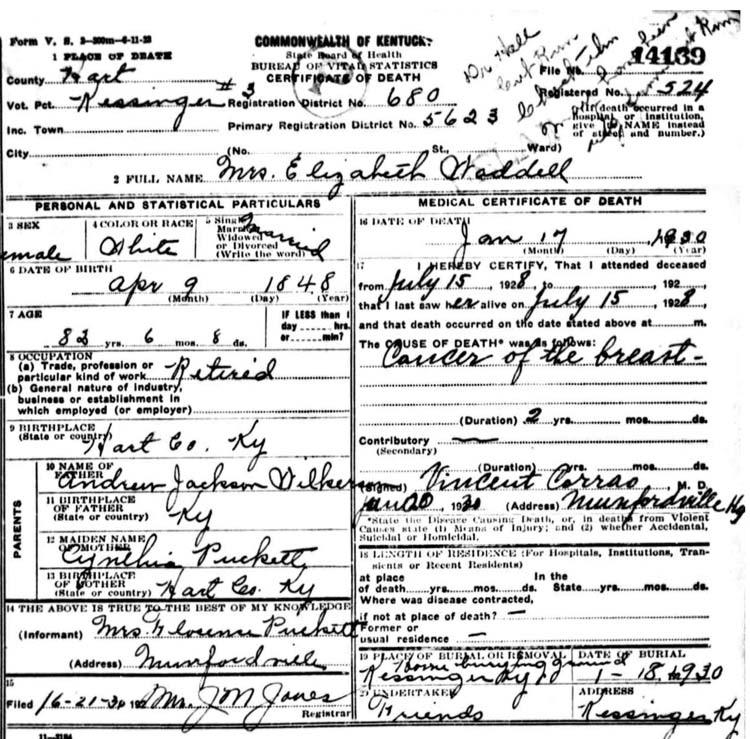 Form V. S. 2-300m-6-11-23
COMMONWEALTH OF KENTUCKY
State Board of Health
BUREAU OF VITAL STATISTICS
CERTIFICATE OF DEATH
Dr Hall
14139
File No.
1 PLACE OF DEATH
County Hart
Registered No. 524
Vot. Pct. Kessinger #3 Registration District No. 680
(If death occurred in a hospital or institution, give its NAME instead of street and number.)
Inc. Town Primary Registration District No. 5623
City (No. St., Ward)
2 FULL NAME Mrs. Elizabeth Waddell
PERSONAL AND STATISTICAL PARTICULARS
3 SEX
emale
4 COLOR OR RACE
White
5 Single
Married
Widowed
or Divorced
(Write the word)
Married
6 DATE OF BIRTH
Apr 9 1848
(Month) (Day) (Year)
7 AGE
82 yrs. 6 mos. 8 ds.
IF LESS than 1
day hrs.
or min?
8 OCCUPATION
(a) Trade, profession or
particular kind of work Retired
(b) General nature of industry,
business or establishment in
which employed (or employer)
9 BIRTHPLACE
(State or country) Hart Co. Ky
PARENTS
10 NAME OF
FATHER Andrew Jackson
11 BIRTHPLACE
OF FATHER
(State or country) Ky
12 MAIDEN NAME
OF MOTHER Cynthia Puckett
13 BIRTHPLACE
OF MOTHER
(State or country) Hart Co. Ky
14 THE ABOVE IS TRUE TO THE BEST OF MY KNOWLEDGE
(Informant) Mrs Florence Puckett
(Address) Munfordville
15
Filed 16-21-30 192 Mrs. J M Jones
Registrar
11-3184
MEDICAL CERTIFICATE OF DEATH
16 DATE OF DEATH
Jan 17 1930
(Month) (Day) (Year)
17 I HEREBY CERTIFY, That I attended deceased
from July 15, 1928, to , 192
that I last saw her alive on July 15, 1928,
and that death occurred on the date stated above at m.
The CAUSE OF DEATH* was as follows:
Cancer of the breast-
(Duration) 2 yrs. mos. ds.
Contributory
(Secondary)
(Duration) yrs. mos. ds.
(Signed) Vincent Corrao, M. D.
Jan 20 1930 (Address) Munfordville Ky
*State the Disease Causing Death, or, in deaths from Violent
Causes state (1) Means of Injury; and (2) whether Accidental,
Suicidal or Homicidal.
18 LENGTH OF RESIDENCE (For Hospitals, Institutions, Tran-
sients or Recent Residents)
at place In the
of death yrs. mos. ds. State yrs. mos. ds.
Where was disease contracted,
if not at place of death? —
Former or
usual residence —
19 PLACE OF BURIAL OR REMOVAL
Home burying ground
Kessinger Ky
DATE OF BURIAL
1-18, 1930
20 UNDERTAKER
Friends
ADDRESS
Kessinger Ky